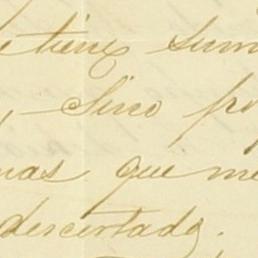 tiene sum
, Sino po
mas que me
descertado.